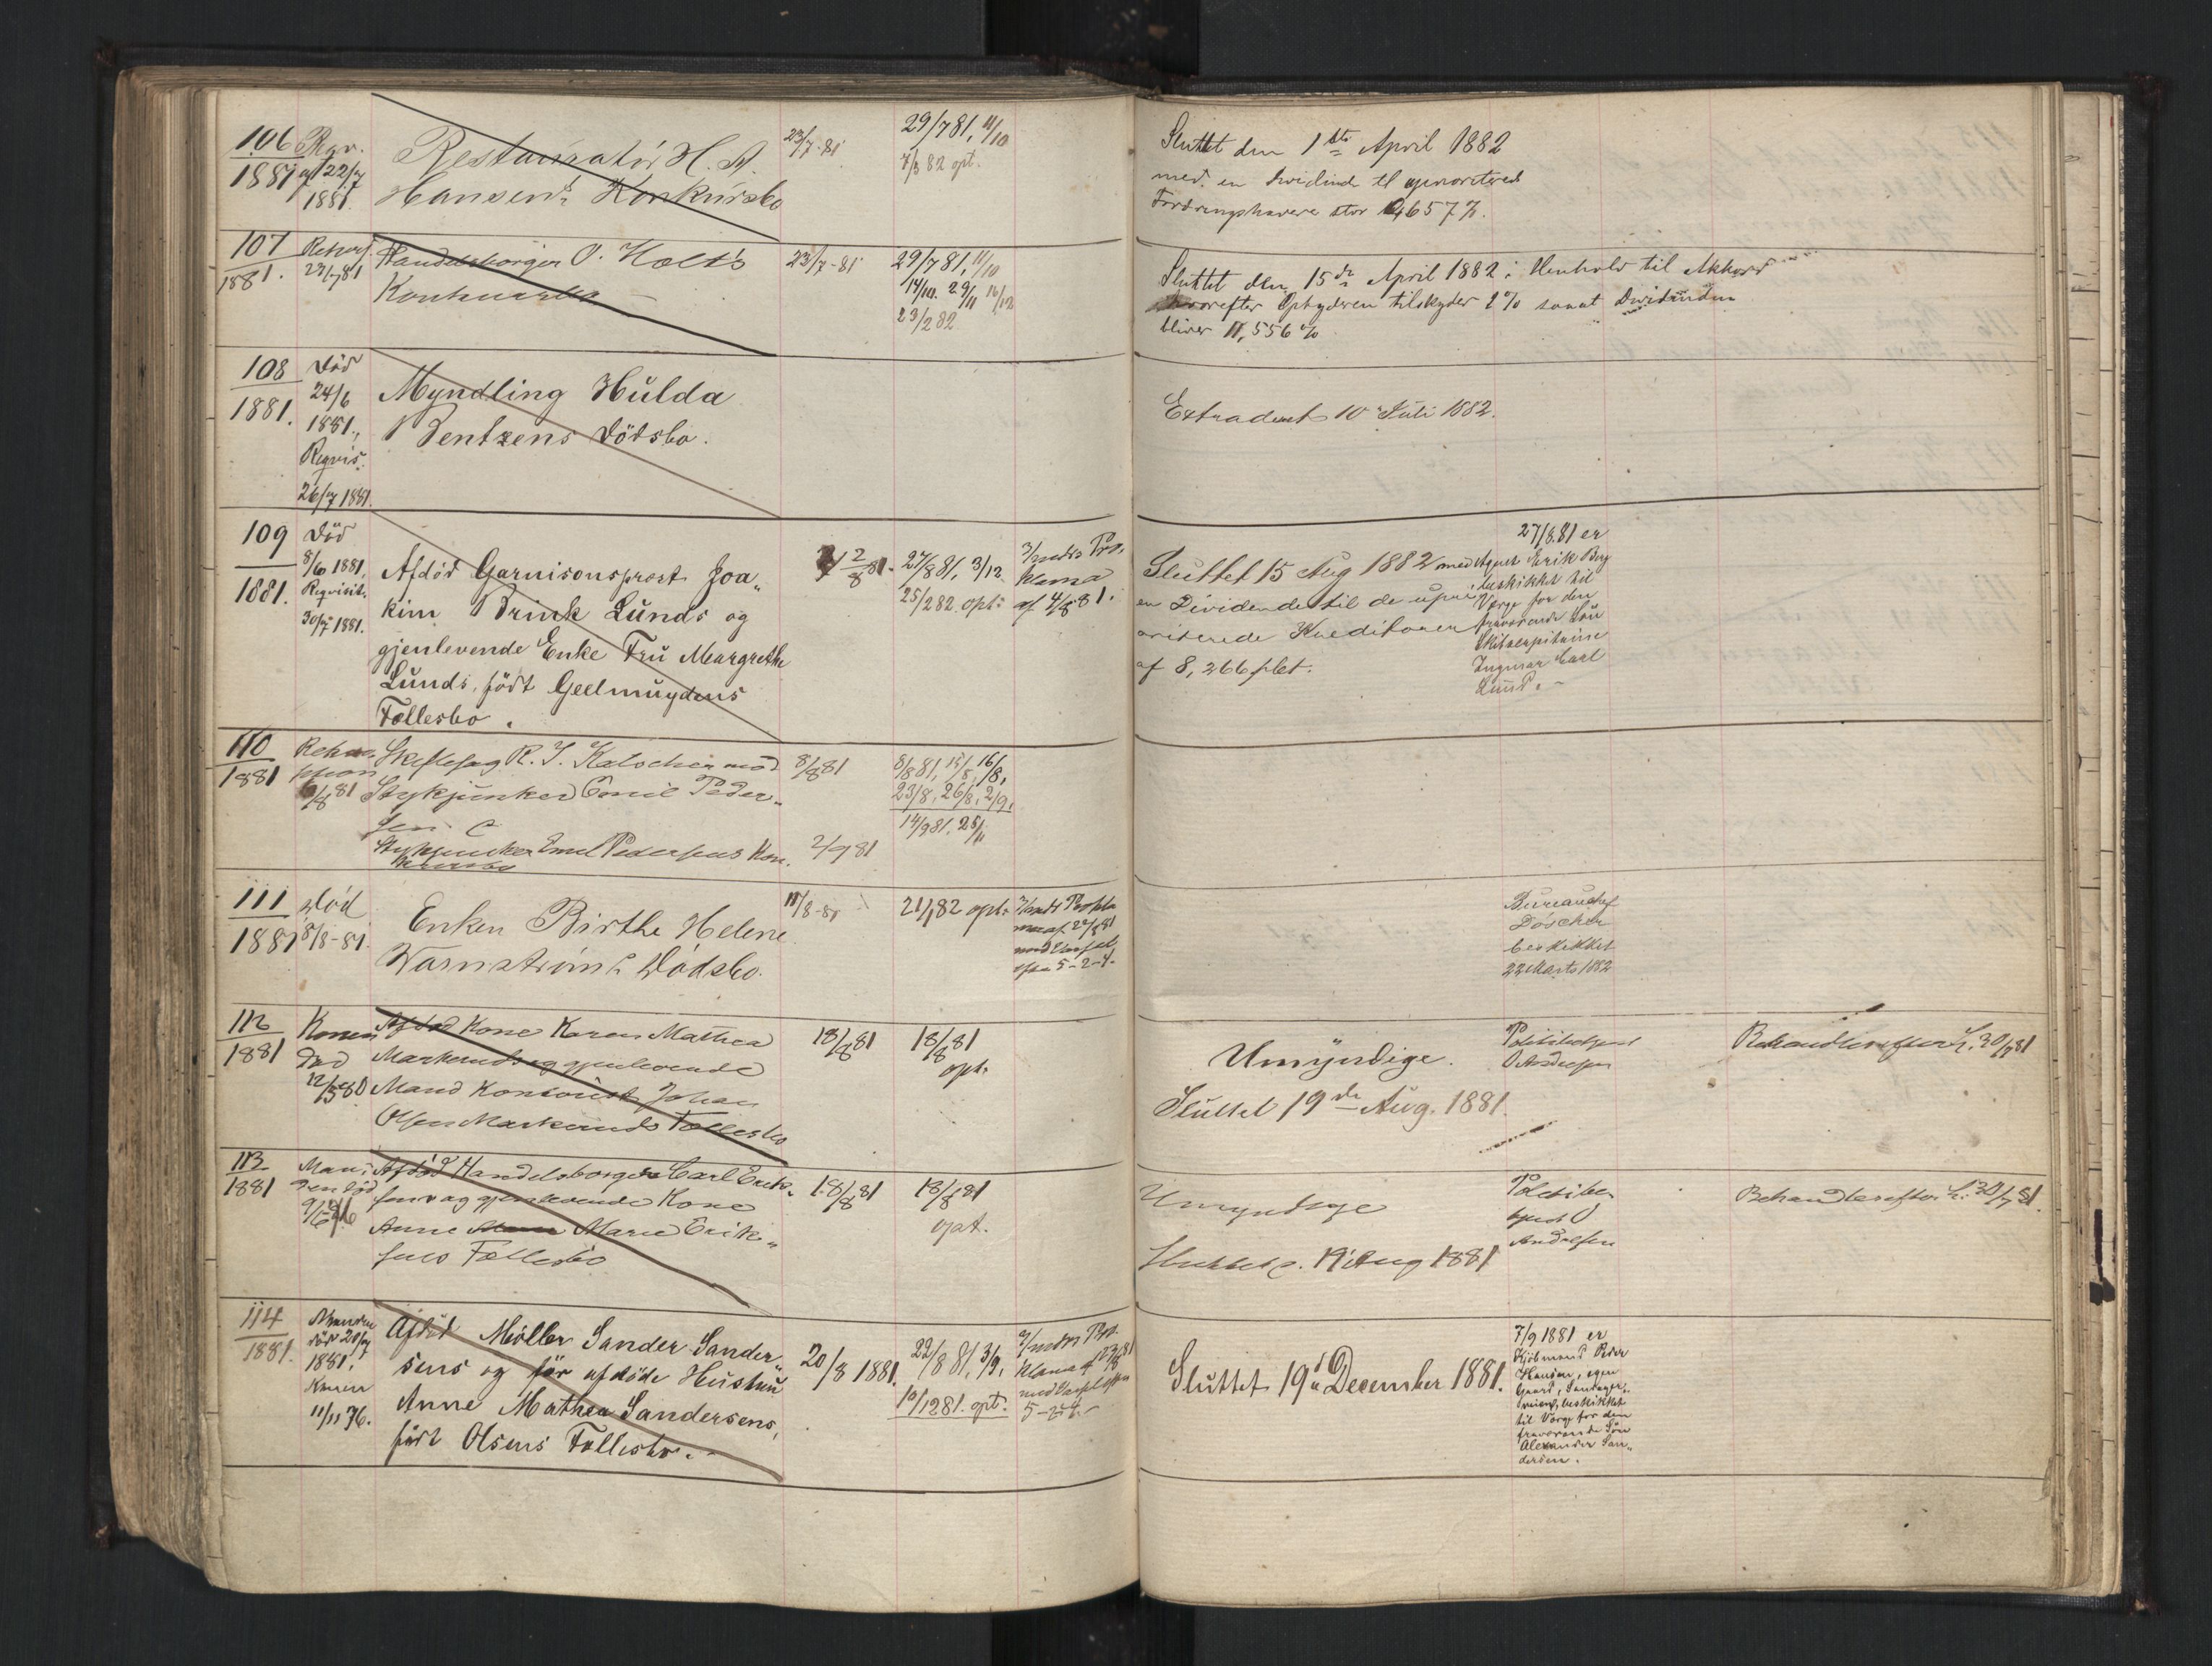 106
1881
Rqv.
af 22/7
1881.
Restauratör H. A.
Hansens Konkursbo
23/7-81
29/7 81, 11/10
7/3 82 opt.
Sluttet den 1ste April 1882
med en Dividende til uprioriterede
Fordringshavere stor 4,657 %.
107
1881.
27/7 81
Handelsborger O. Holts
Konkursbo
23/7-81
29/7 81, 11/10
14/10. 29/11 16/12
23/2 82
Sluttet den 15de April 1882 i Henhold til Akkord
hvorefter Opbyderen tilskyder 2 % samt Dividenden
bliver 11,556 %
108
1881.
Död
24/6
1881.,
Reqvis.
26/7 1881.
Myndling Hulda
Bentzens Dödsbo.
Extraderet 10 Juli 1882.
109
1881.
Död
8/6 1881.
Reqvisit.
30/7 1881.
Afdöd Garnisonsprost Joa„
kim Brink Lunds og
gjenlevende Enke Fru Margrethe
Lunds, födt Geelmuydens
Fællesbo.
2/8 81.
27/8 81, 3/12
25/2 82. opt:
3/mdrs Pro„
klama
af 4/8 81.
Sluttet 15 Aug 1882 med
en Dividende til de upri
oriterede Kreditorer
af 8,266 pCt.
27/8.81 er
Agent Erik Berg
beskikket til
Værge for den
fraværende Sön
Skibscapitaine
Ingmar Carl
Lund. –
110
1881
6/8 81
Skiftesag R. J. Katscher mod
Stykjunker Emil Peder„
sen
Stykjunker Emil Pedersens Kon„
kursbo
8/8 81
2/9 81
8/8 81, 15/8, 16/8,
23/8, 26/8, 2/9,
14/9 81. 25/11
111
1881
Död
8/8-81.
Enken Birthe Helene
Varnströms Dödsbo.
18/8-81
21/1 82 opt:
efter 5-2-4.
Bureauchef
Döscher
beskikket
22 Marts 1882
112
1881
Konen
Död
12/5 80
Afdöd Kone Karen Mathea
Markeruds og gjenlevende
Mand Kontorist Johan
Olsen Markeruds Fællesbo
18/8 81
18/8 81
opt.
Umyndige.
Sluttet 19de Aug. 1881.
Politibetjent
O Andresen
Behandles efter L. 30/7 81
113
1881
Man„
den död
Afdöd Handelsborger Carl Erik„
sens og gjenlevende Kone
Anne Marie Erik„
sens Fællesbo
18/8 81
18/8 81
opt.
Umyndige
Sluttet d. 19 Aug 1881
Politibe
tjent O
Andresen
Behandles efter L. 30/7 81.
114
1881.
Manden
död 20/7
1881.
Konen
11/11 76.
Afdöd Möller Sander Sander„
sens og för afdöde Hustru
Anne Mathea Sandersens,
födt Olsens Fællesbo. –
20/8 1881.
22/8 81, 3/9,
10/12 81. opt.
3/mdrs Pro„
klama af 23/8 81
med Varsel efter
5-2-4. –
Sluttet 19de December 1881.
7/9 1881 er
Kjöbmand Peder
Hansen, egen
Gaard,
beskikket
til Værge for den
fraværende Sön
Alexander San„
dersen.